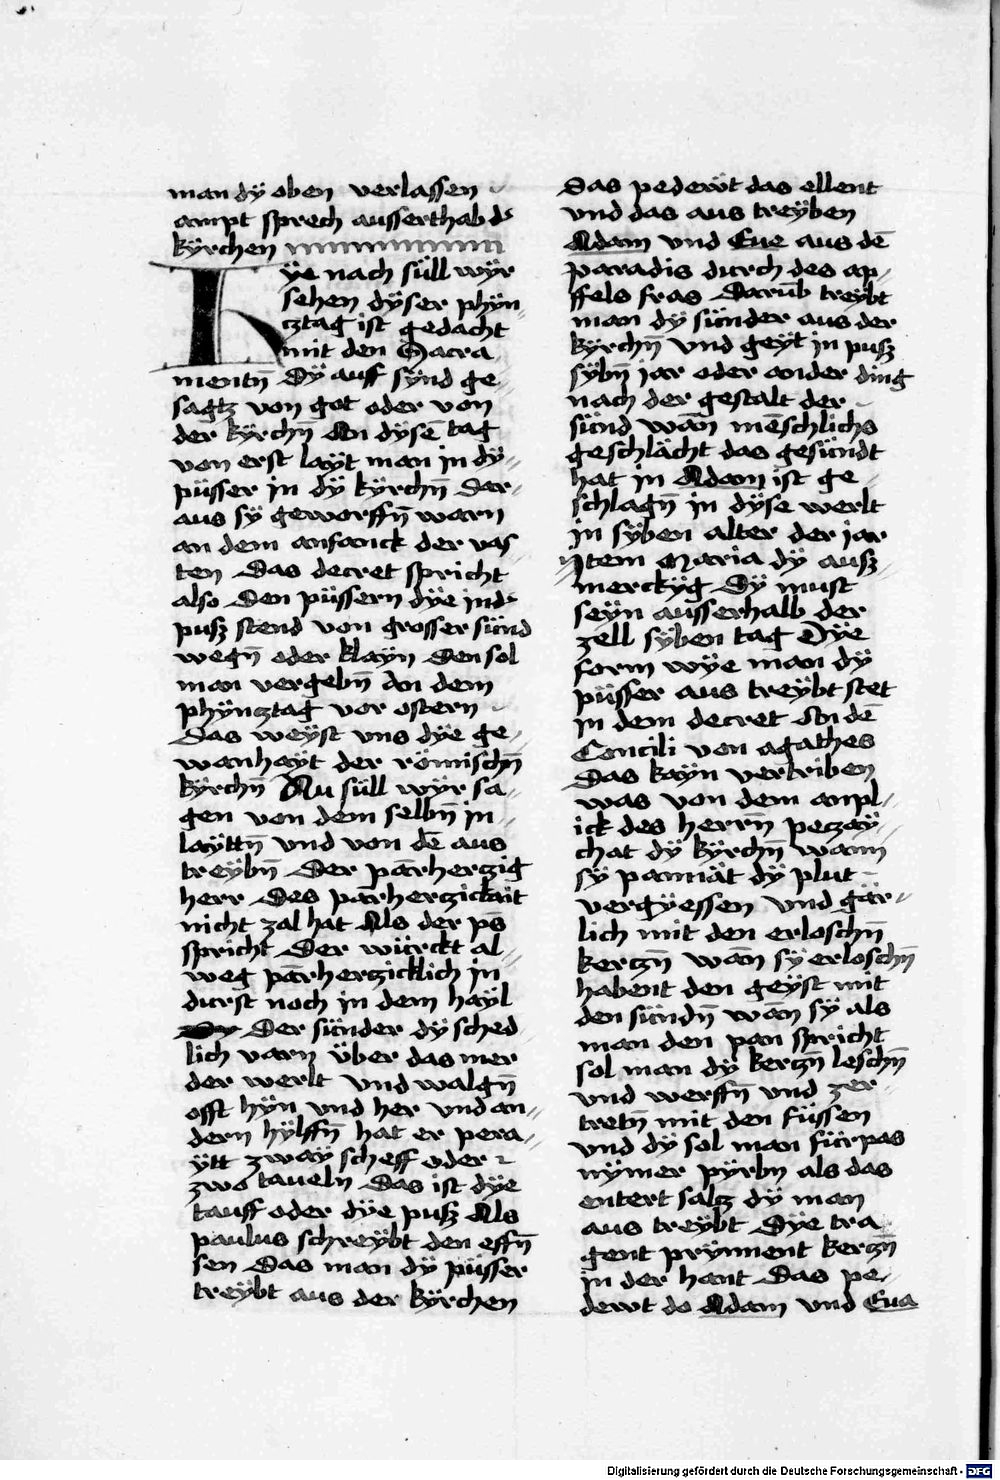 man dÿ oben verlassen
ampt sprech ausserthab ds
kÿrchen
ÿe nach süll wÿr
sehen dÿser phÿn
cztag ist gedacht
mit den Sacra
mentn̄ Dÿ auff sÿnd ge
sagtz von got oder von
der kÿrchn̄ An dÿsē tag
von erst laÿt man in dÿ
püsser in dÿ kÿrchn̄ Dar
aus sÿ geworffn̄ warn
an dem anfanck der vas
ten Das decret spricht
also Den püssern dÿe in ds
pusz stend von grosser sünd
wegn̄ oder klaÿn Den sol
man vergebn̄ An dem
phÿncztag vor ostern
Das weÿst vns dÿe ge
wanhaÿt der römischn̄
kÿrchn̄ Nu süll wÿr sa
gen von dem selbn̄ in
laÿttn̄ vnd von dē aus
treÿbn̄ Der pārherczig
herr Des pārherczickait
nicht zal hat Als der ps̄
spricht Der würckt al
weg pārherczicklich in
durst noch in dem haÿl
Der sünder dÿ sched
lich varn über das mer
der werlt vnd walgn̄
offt hÿn vnd her vnd an
dern hÿlffn̄ hat er pera
ÿtt zwaÿ scheff oder
zwo taueln Das ist dÿe
tauff oder dÿe pusz Als
paulus schreÿbt den effn̄
sen Das man dÿ püsser
treÿbt aus der kÿrchen
Das pedewt das ellent
vnd das aus treÿben
Adam vnd Eue aus dē
paradis durch des ap
ffels fras Darūb treÿbt
man dÿ sünder aus der
kÿrchn̄ vnd geÿt in pusz
sÿbn̄ jar oder ander ding
nach der gestalt der
sünd wān mēschlichs
geschlächt das gesündt
hat in Adam ist ge
schlagn̄ in dÿse werlt
in sÿben alter der jar
Item Maria dÿ ausz
merckÿg Dÿ must
seÿn ausserhalb der
zell sÿben tag Dÿe
form wÿe man dÿ
püsser aus treÿbt stet
in dem decret Vn dē
Concili von agathes
Das kaÿn vertriben
was von dem anpl
ick des herrn̄ peczaÿ
chat dÿ kÿrchn̄ wann
sÿ panniät dÿ plut
vergÿessen vnd gär
lich mit den erloschn̄
kerczn̄ wān sÿ erloschn̄
habent den geÿst mit
den sündn̄ wān sÿ als
man den pan spricht
sol man dÿ kerczn̄ leschn̄
vnd werffn̄ vnd zer
tretn̄ mit den füssen
vnd dÿ sol man fürpas
nÿmer pÿrbn als das
entert saltz dÿ man
aus treÿbt Dÿe tra
gent prÿnnent kerczn̄
in der hant Das pe
dewt do Adam vnd Eua
Digitalisierung gefördert durch die Deutsche Forschungsgemeinschaft - DFG